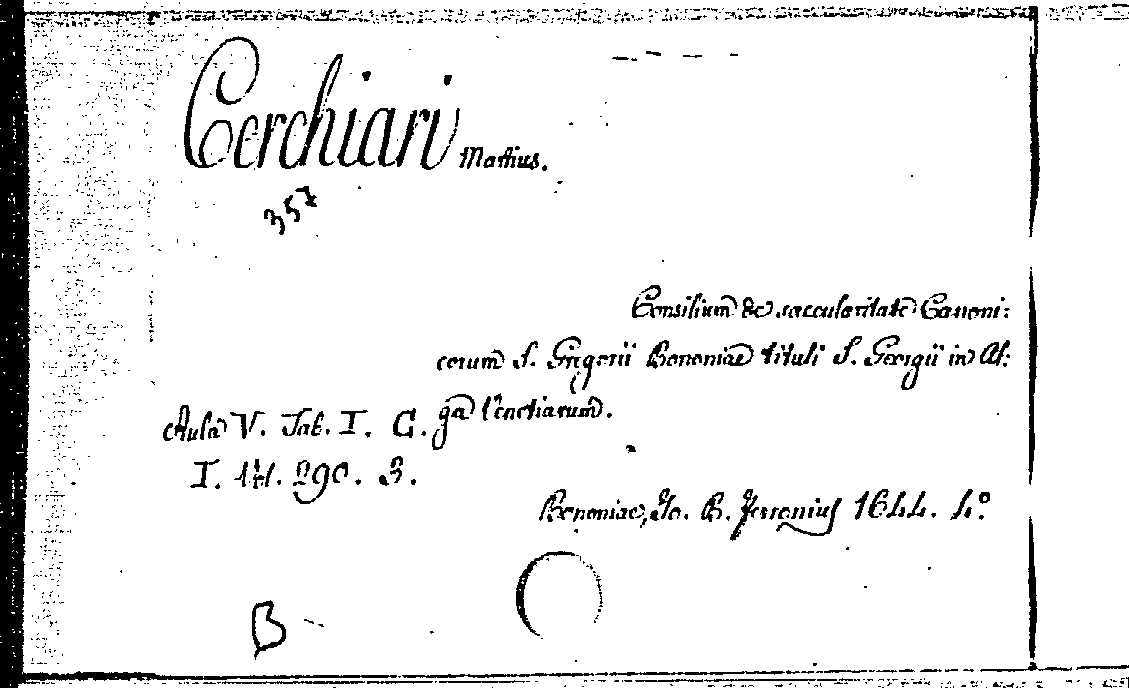 Cerchiari Mattius.
357
Consilium de saecularitate Canoni:
corum S. Gregorii Bononiae tituli S. Georgii in Al:
ga Venetiarum.
Aula V. Tab. I. C.
I. 290. 3.
Bononiae, Jo. B. Ferronius 1644. 4.º
B